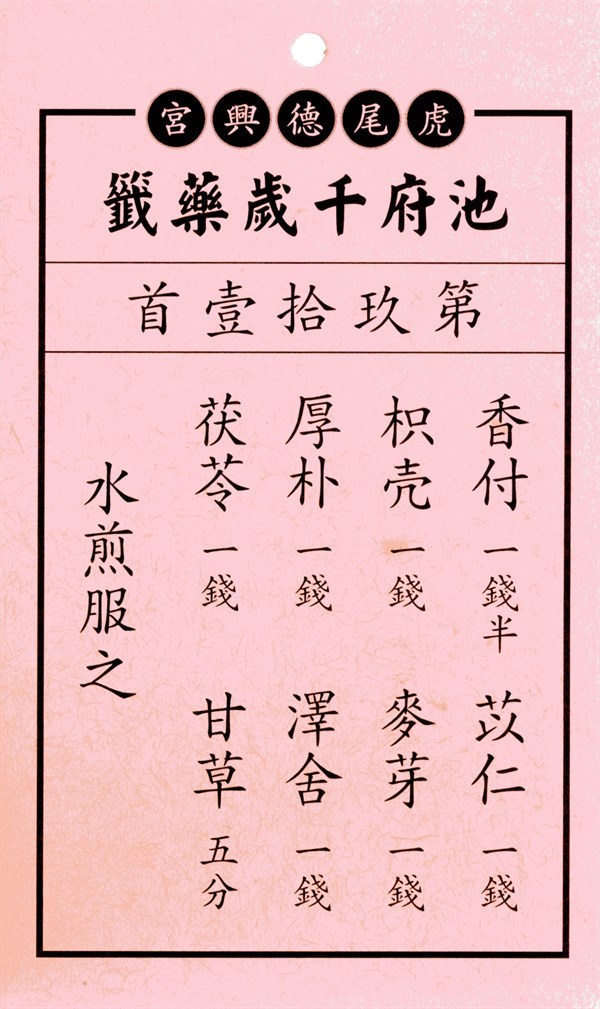 虎尾德興宮
池府千歲藥籤
第玖拾壹首
香付一錢半 苡仁一錢
枳壳一錢 麥芽一錢
厚朴一錢 澤舍一錢
茯苓一錢 甘草五分
水煎服之